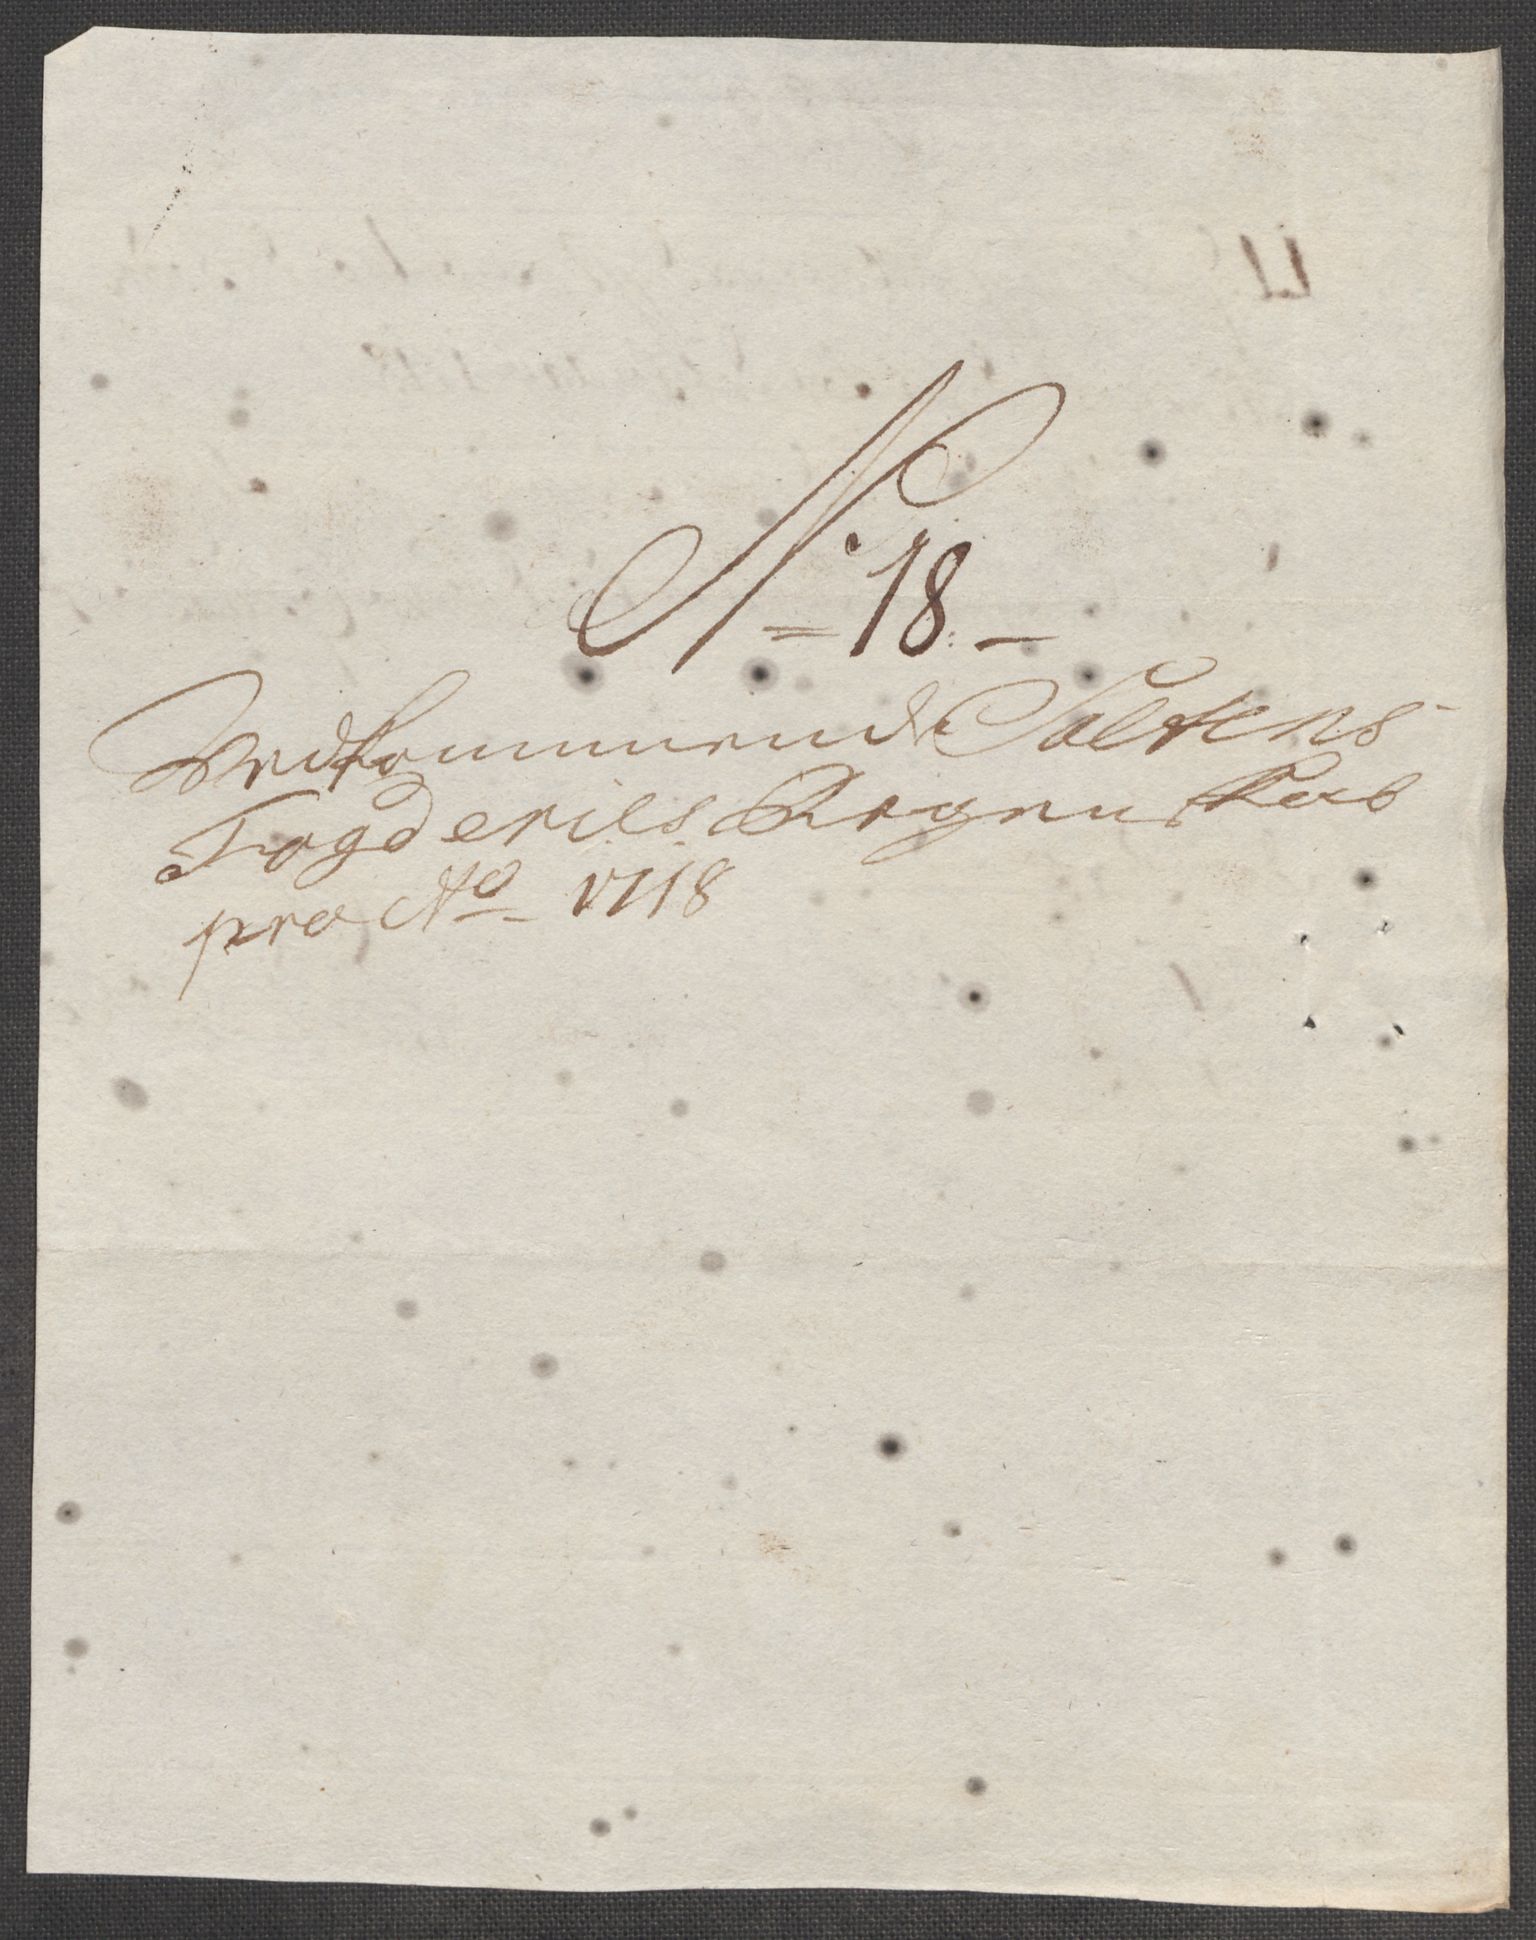 N: 18. –
Vedkommende Saltens
Fogderies Regenskab
pro Ao 1718